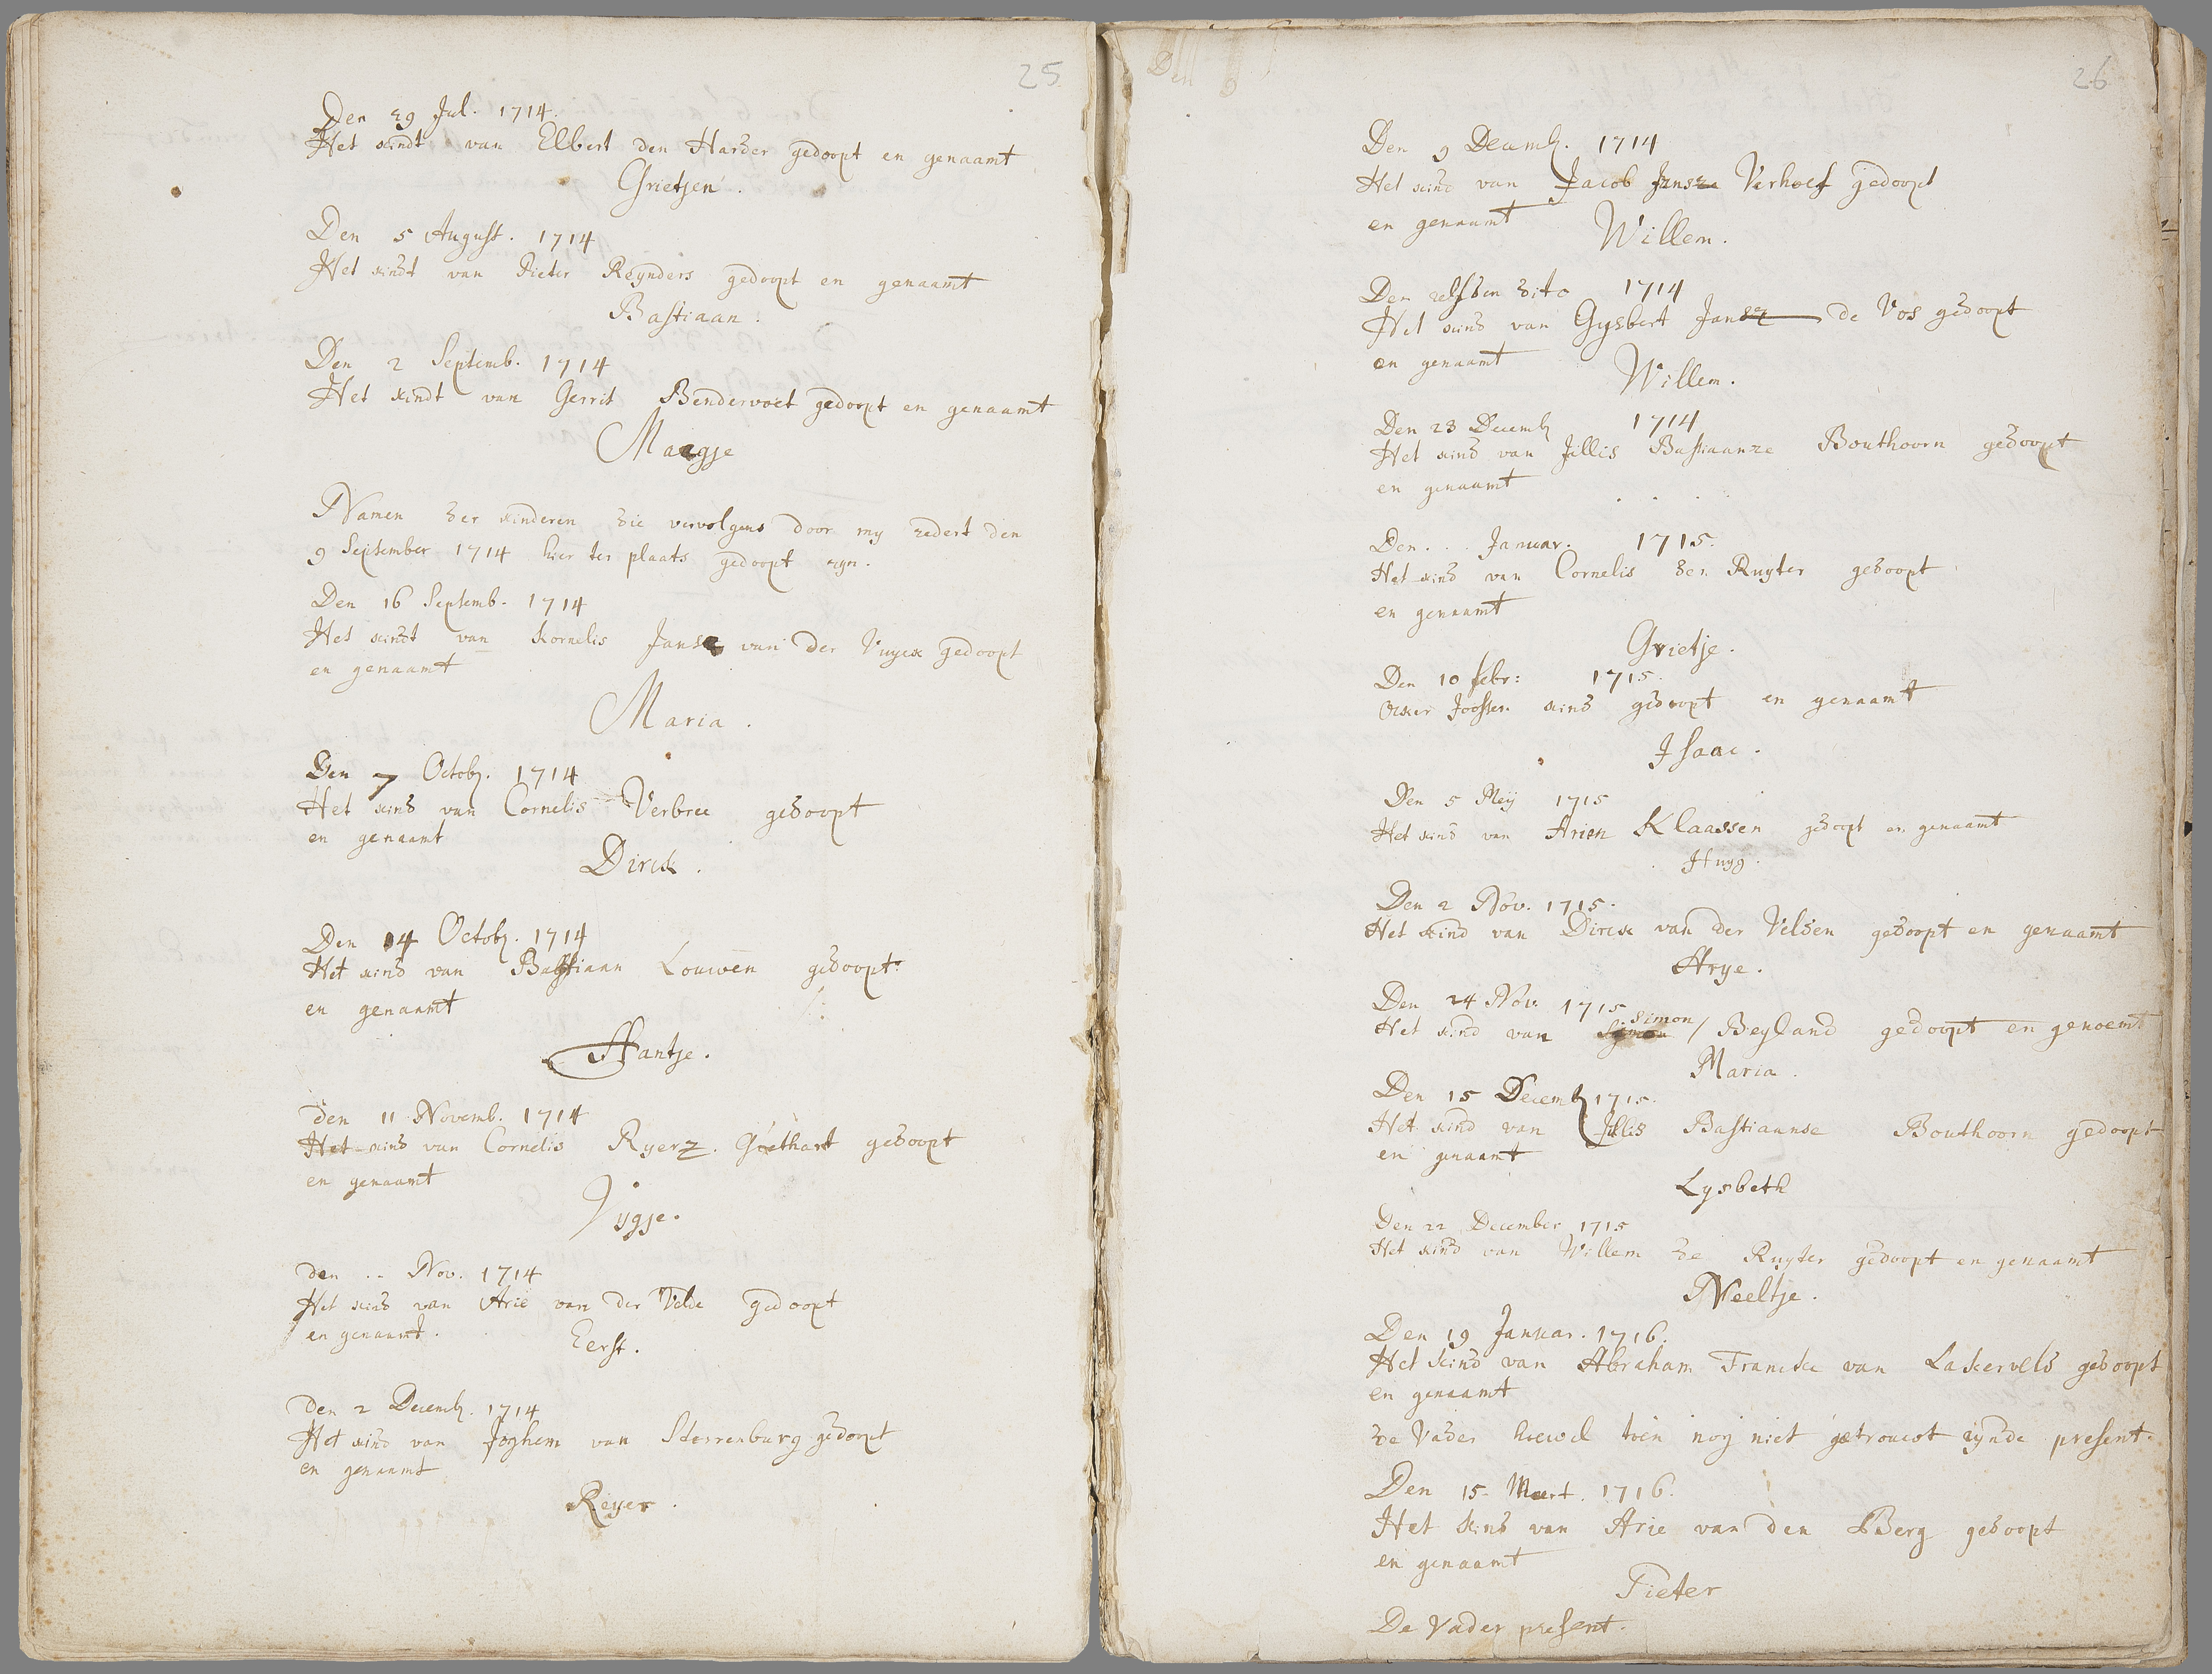 25
Den 29 Jul. 1714.
Het kindt van Elbert den Harder gedoopt en genaamt
Grietjen.
Den 5 August. 1714
Het kindt van Pieter Reynders gedoopt en genaamt
Bastiaan.
Den 2 Septemb. 1714
Het kindt van Gerrit Bendervoet gedoopt en genaamt
Maagje
Namen der kinderen die vervolgens door my zedert den
9 September 1714 hier ter plaats gedoopt zyn.
Den 16 Septemb. 1714
Het kindt van Kornelis Janse van der Vuyck gedoopt
en genaamt
Maria.
Den 7 Octob. 1714
Het kind van Cornelis Verbree gedoopt
en genaamt
Dirck.
Den 14 Octob. 1714
Het kind van Bastiaan Louwen gedoopt
en genaamt
Hantje.
den 11 Novemb. 1714
Het kind van Cornelis Ryerz. Goethart gedoopt
en genaamt
Vygje.
den .. Nov. 1714
Het kind van Arie van der Velde gedoopt
en genaamt.
Eerst.
den 2 Decemb. 1714
Het kind van Joghem van Sterrenburg gedoopt
en genaamt
Reyer.
Den 9
26
Den 9 Decemb. 1714
Het kind van Jacob Jansze Verhoef gedoopt
en genaamt
Willem.
Den zelfden dito 1714
Het kind van Gysbert Jansz de Vos gedoopt
en genaamt
Willem.
Den 23 Decemb 1714
Het kind van Jillis Bastiaanze Bouthoorn gedoopt
en genaamt . . .
Den . . . Januar. 1715.
Het kind van Cornelis den Ruyter gedoopt
en genaamt
Grietje.
Den 10 febr: 1715.
Ocker Joossen kind gedoopt en genaamt
Isaac.
Den 5 Meij 1715
Het kind van Arien Klaassen gedoopt en genaamt
Huyg.
Den 2 Nov. 1715.
Het kind van Dirck van der Velden gedoopt en genaamt
Arye.
Den 24 Nov. 1715
Het kind van Symon Simon / Beyland gedoopt en genoemt
Maria.
Den 15 Decemb 1715.
Het kind van Jillis Bastiaanse Bouthoorn gedoopt
en genaamt
Lysbeth
Den 22 December 1715
Het kind van Willem de Ruyter gedoopt en genaamt
Neeltje.
Den 19 Januar. 1716.
Het kind van Abraham Francke van Lakerveld gedoopt
en genaamt
de Vader hoewel toen nog niet getrouwt zynde present.
Den 15 Meert. 1716.
Het kind van Arie van den Berg gedoopt
en genaamt
Pieter
De Vader present.